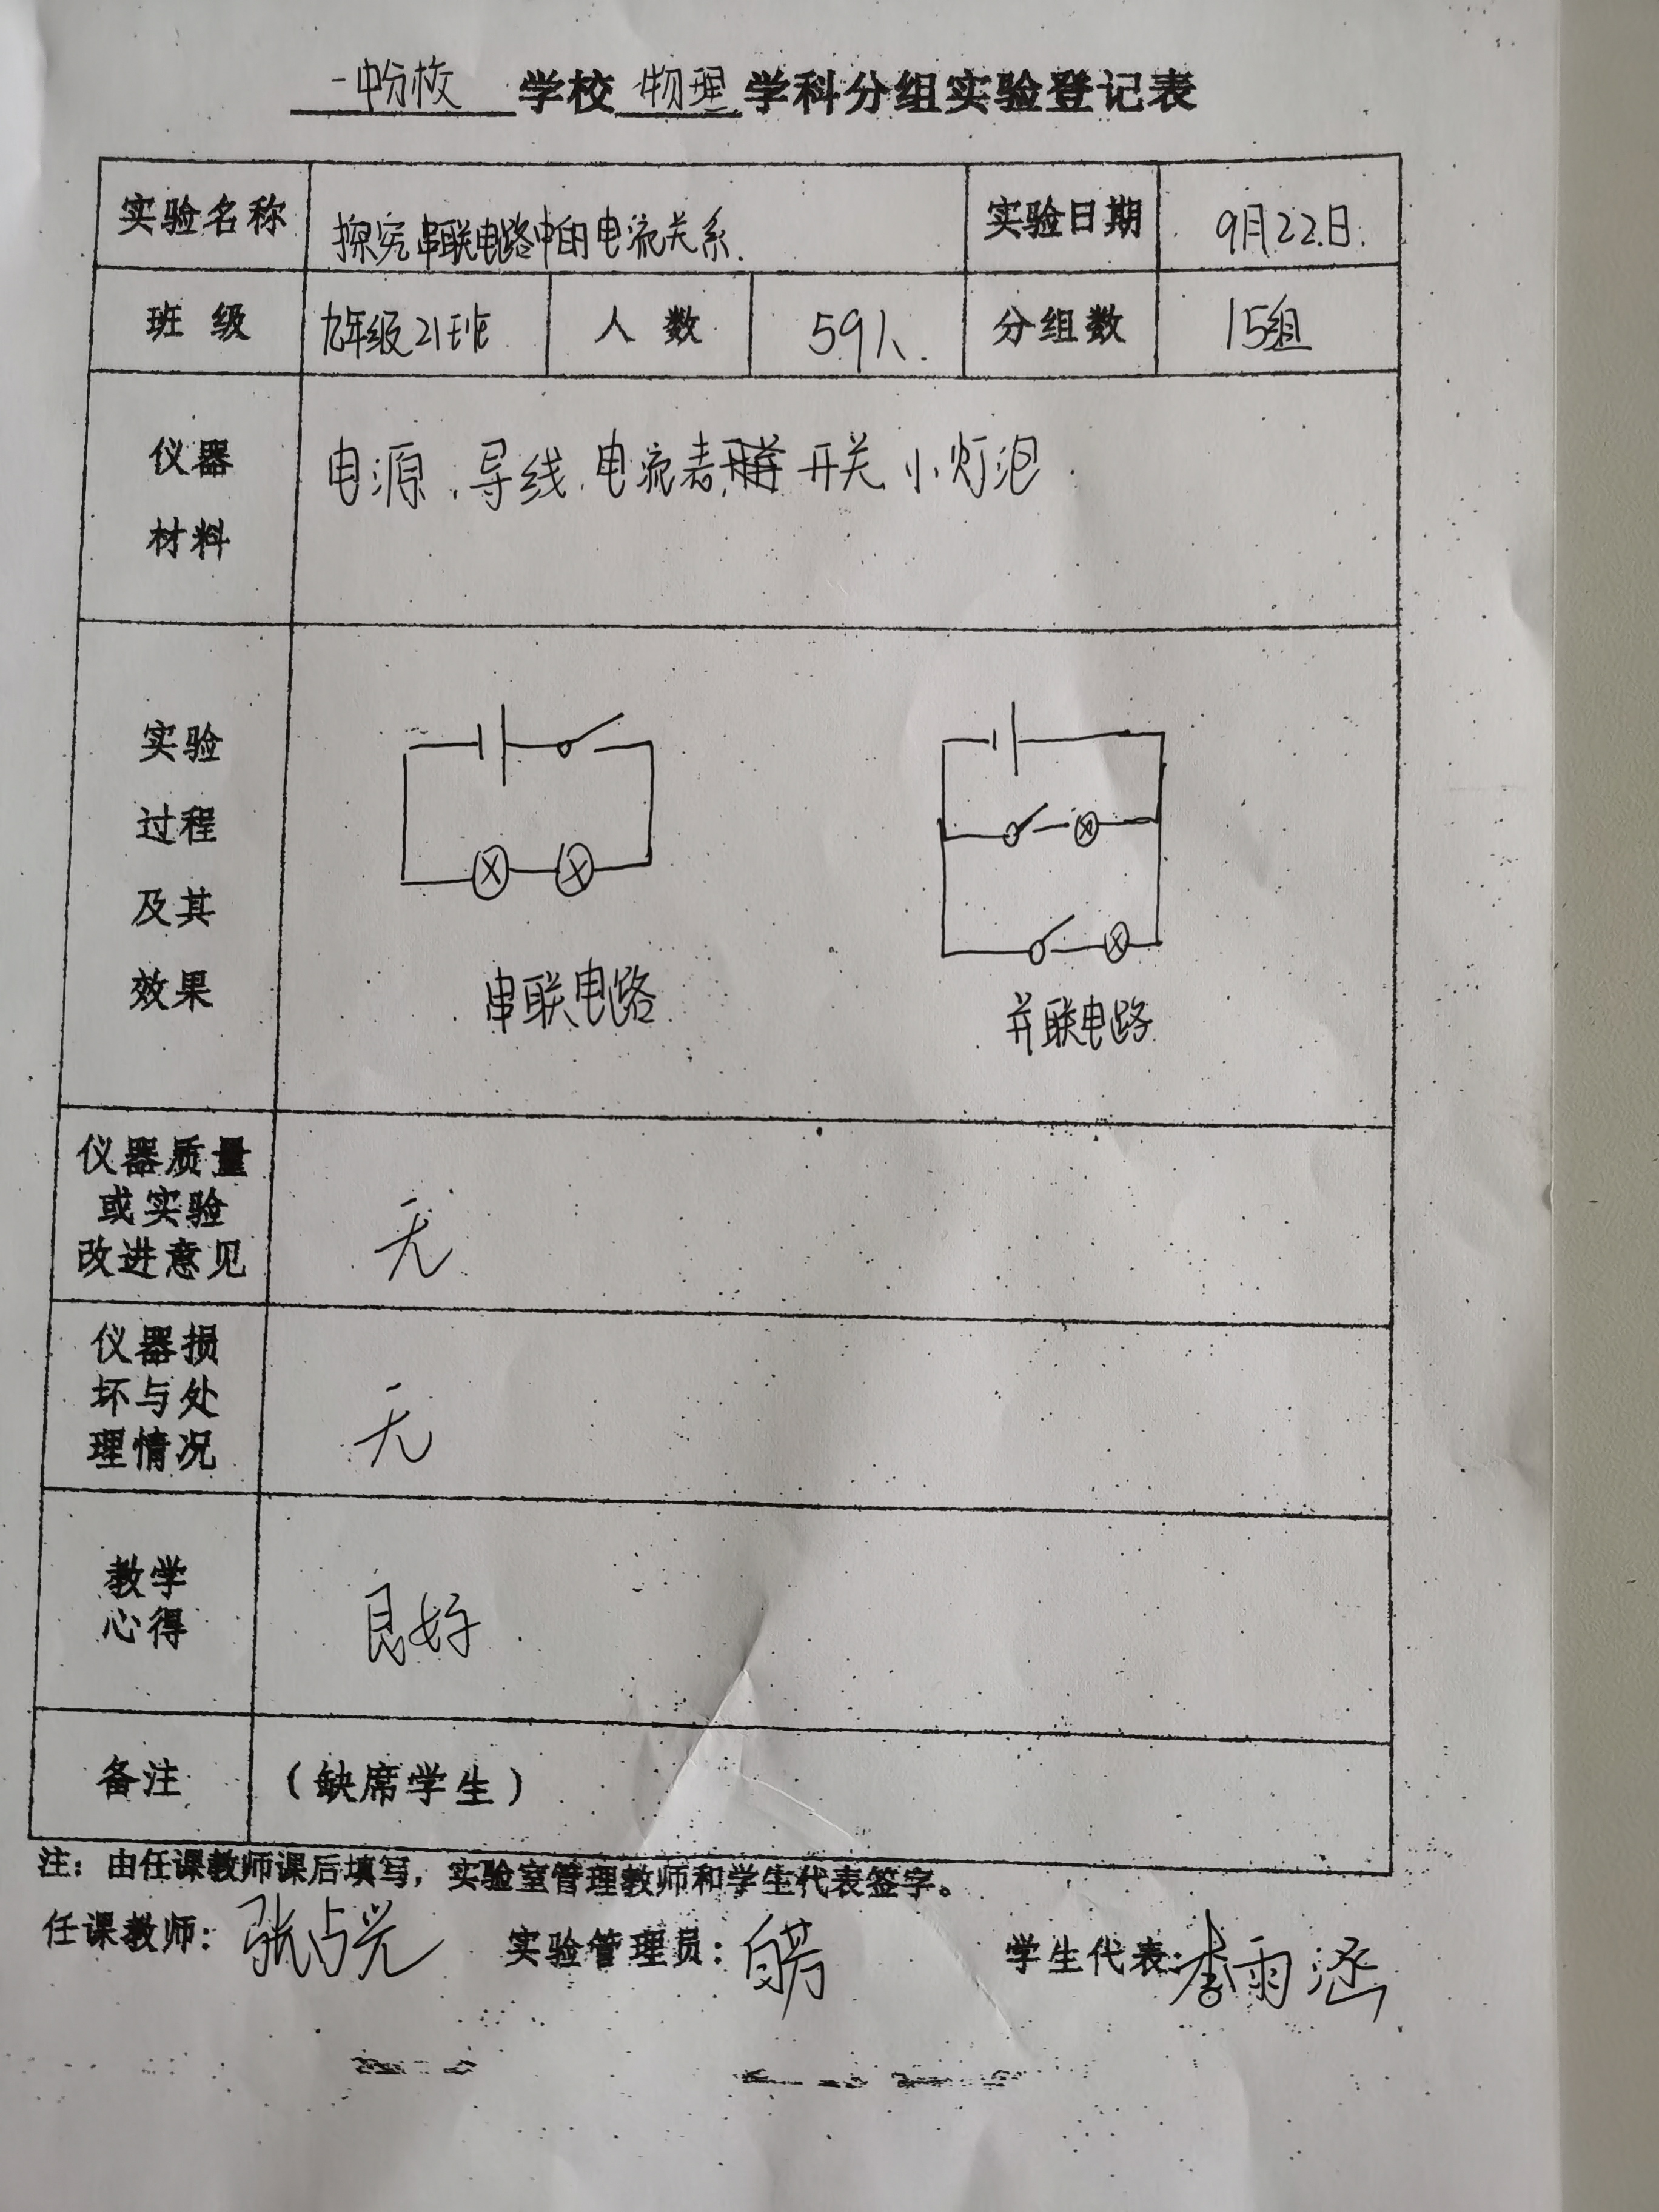 一中分校 学校 物理 学科分组实验登记表
实验名称 探究串联电路中的电流关系. 实验日期 9月22日.
班级 九年级21班 人数 59人. 分组数 15组
仪器
材料
电源、导线、电流表, 开关 小灯泡.
实验
过程
及其
效果
串联电路
并联电路
仪器质量
或实验
改进意见
无
仪器损
坏与处
理情况
无
教学
心得
良好
备注 (缺席学生)
注：由任课教师课后填写，实验室管理教师和学生代表签字。
任课教师: 张占光 实验管理员: 学生代表: 李雨涵